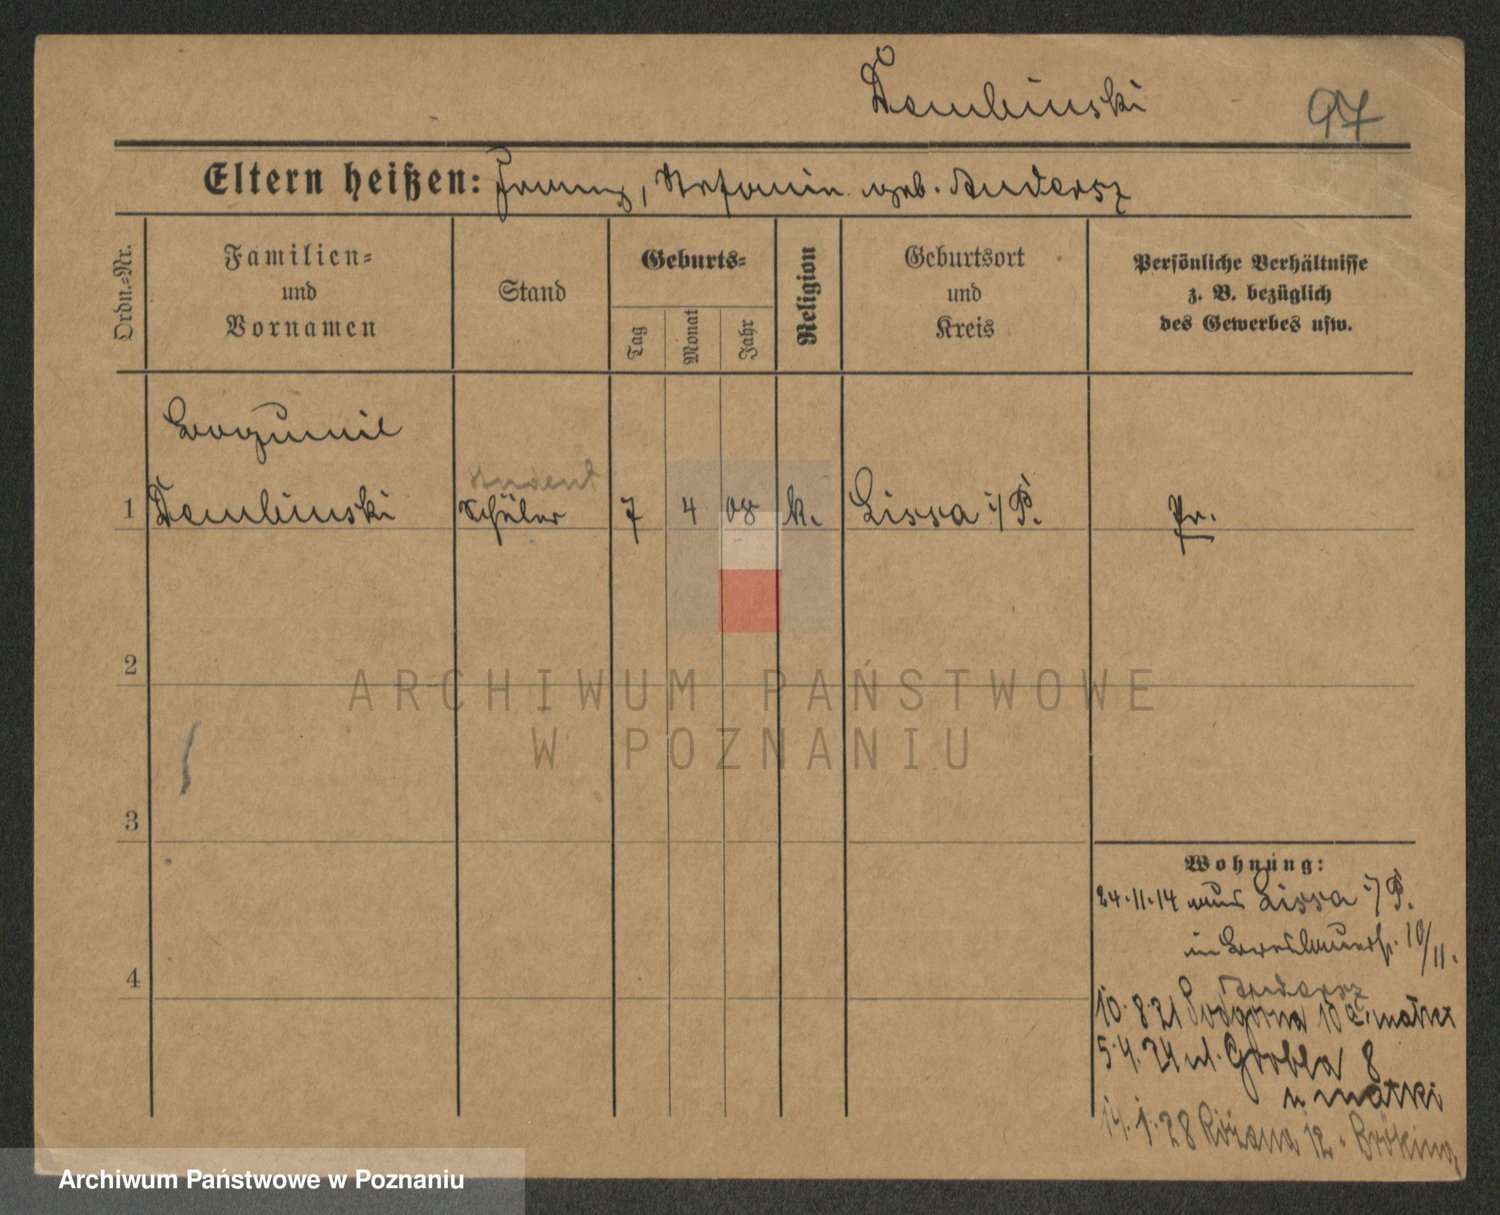 Dembinski
97
Eltern heißen: Franz, Stefanie geb. Andersz
Ordn.-Nr.
Familien-
und
Vornamen
Stand
Geburts-
Tag
Monat
Jahr
Religion
Geburtsort
und
Kreis
Persönliche Verhältnisse
z. B. bezüglich
des Gewerbes usw.
Bogumil
student
1 Dembinski Schüler 7 4 08 k. Lissa i/P. Pr.
2
ARCHIWUM PAŃSTWOWE
W POZNANIU
3
Wohnung:
24.11.14 aus Lissa i/P.
in 10/11.
4
Andersz
10.8.21 Podgórna 10a matki
5.4.24 ul. Grobla 8
u matki
14.1.28 Różana 12
Archiwum Państwowe w Poznaniu